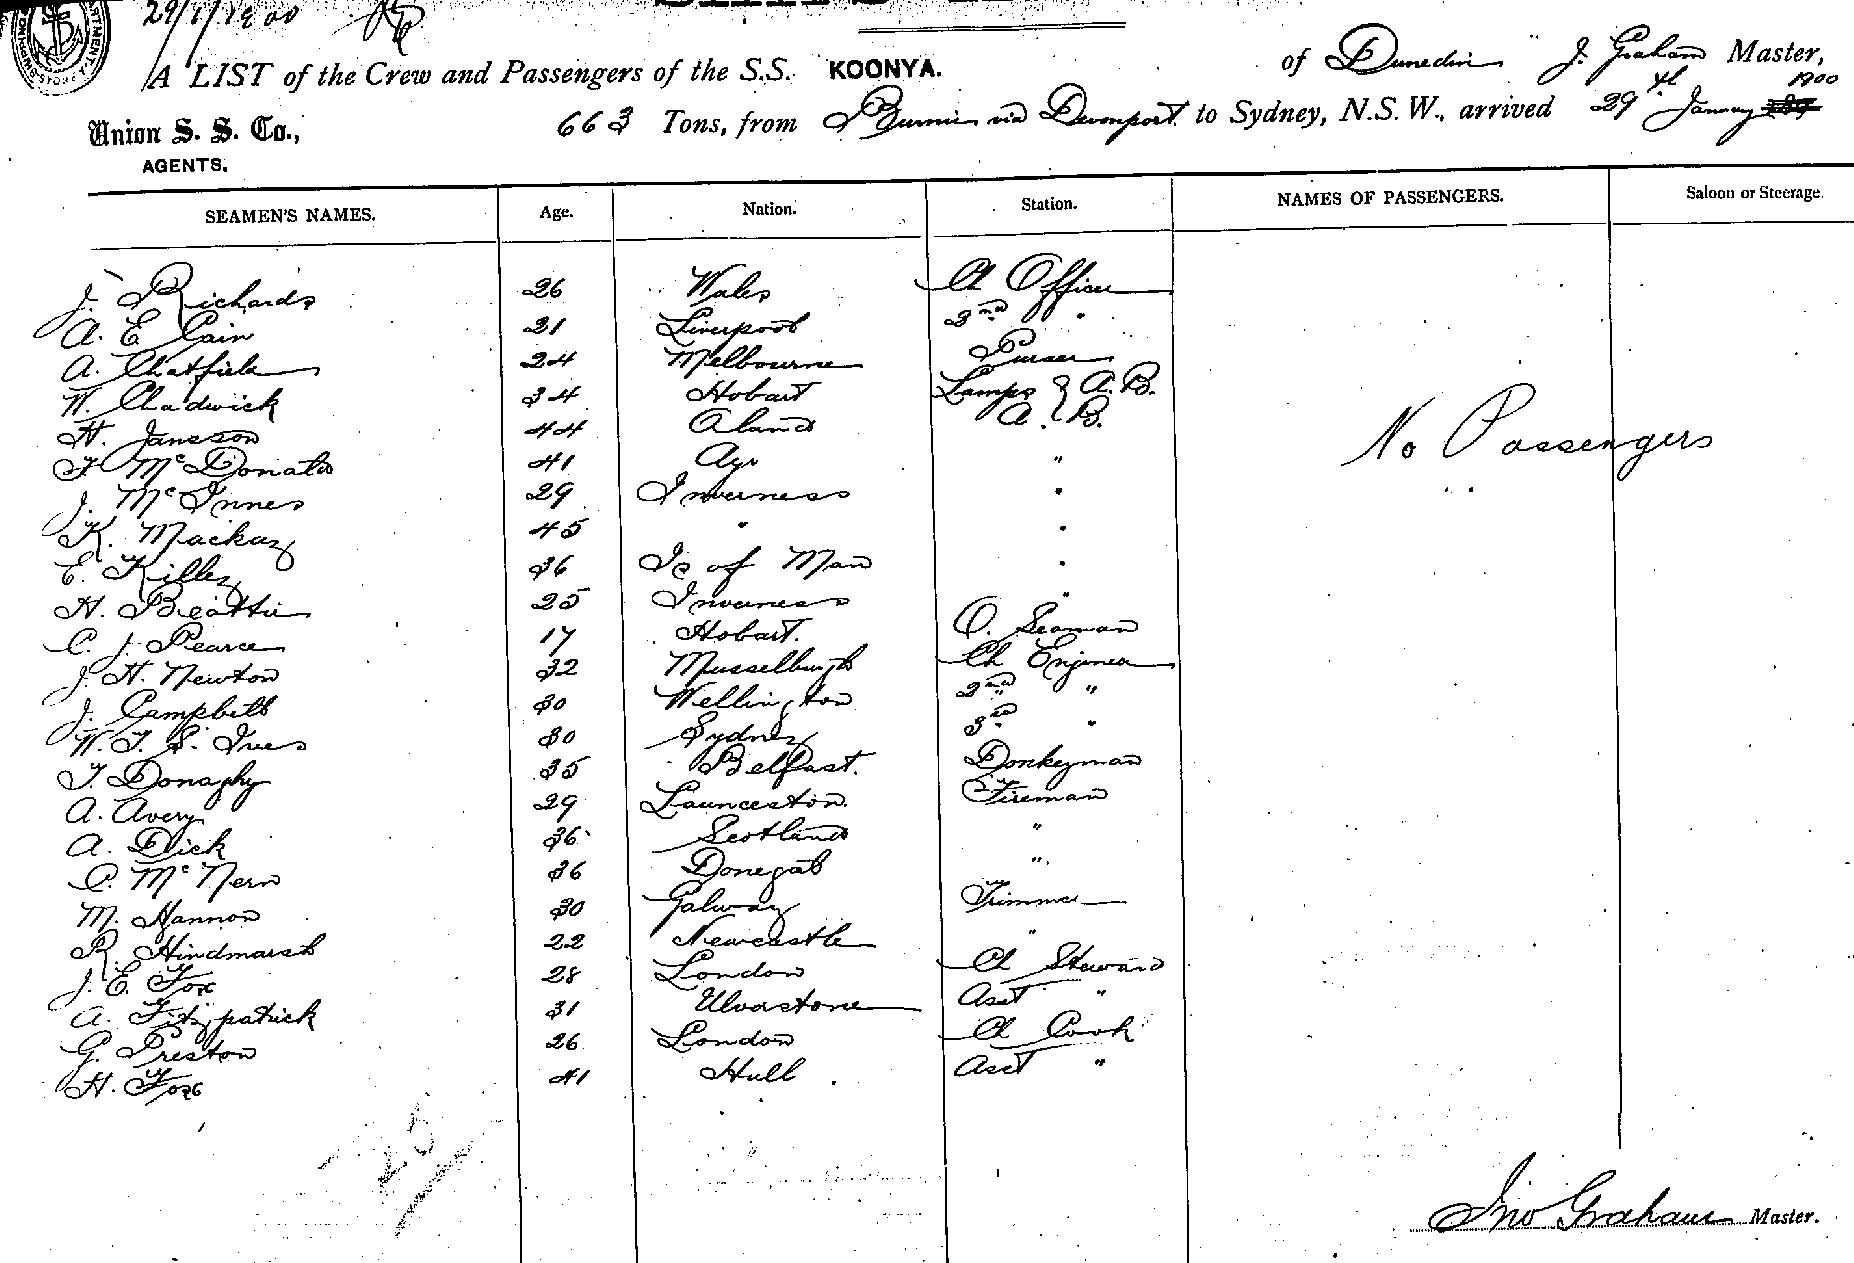 29/1/1900
A LIST of the Crew and Passengers of the S.S. KOONYA. of Dunedin J. Graham Master,
663 Tons, from Burnie via Devonport to Sydney, N.S.W., arrived 29th January 189 1900
Union S. S. Co.,
AGENTS.
SEAMEN'S NAMES. Age. Nation. Station. NAMES OF PASSENGERS. Saloon or Steerage.
J. Richards 26 Wales Ch Officer
A. E. Cain 21 Liverpool 2nd "
A. Chatfield 24 Melbourne Purser
W. Chadwick 34 Hobart Lamps } A.B.
H. Jansson 44 Aland A. B.
F McDonald 41 Ayr "
J. McInnes 29 Inverness "
K. Mackay 45 " "
E. Killey 36 Is of Man "
H. Beattie 25 Inverness "
C. J. Pearce 17 Hobart. O. Seaman
J. H. Newton 32 Musselburgh Ch Engineer
J. Campbell 30 Wellington 2nd "
W. T. S. Ives 30 Sydney 3rd "
T. Donaghy 35 Belfast. Donkeyman
A. Avery 29 Launceston. Fireman
A. Dick 36 Scotland "
C. McNern 36 Donegal "
M. Hannon 30 Galway Trimmer
R. Hindmarsh 22 Newcastle "
J. E. Fox 28 London Ch Steward
A. Fitzpatrick 31 Ulverstone Asst "
G. Preston 26 London Ch Cook
H. Fox 41 Hull Asst "
No Passengers
25
Jno Graham Master.